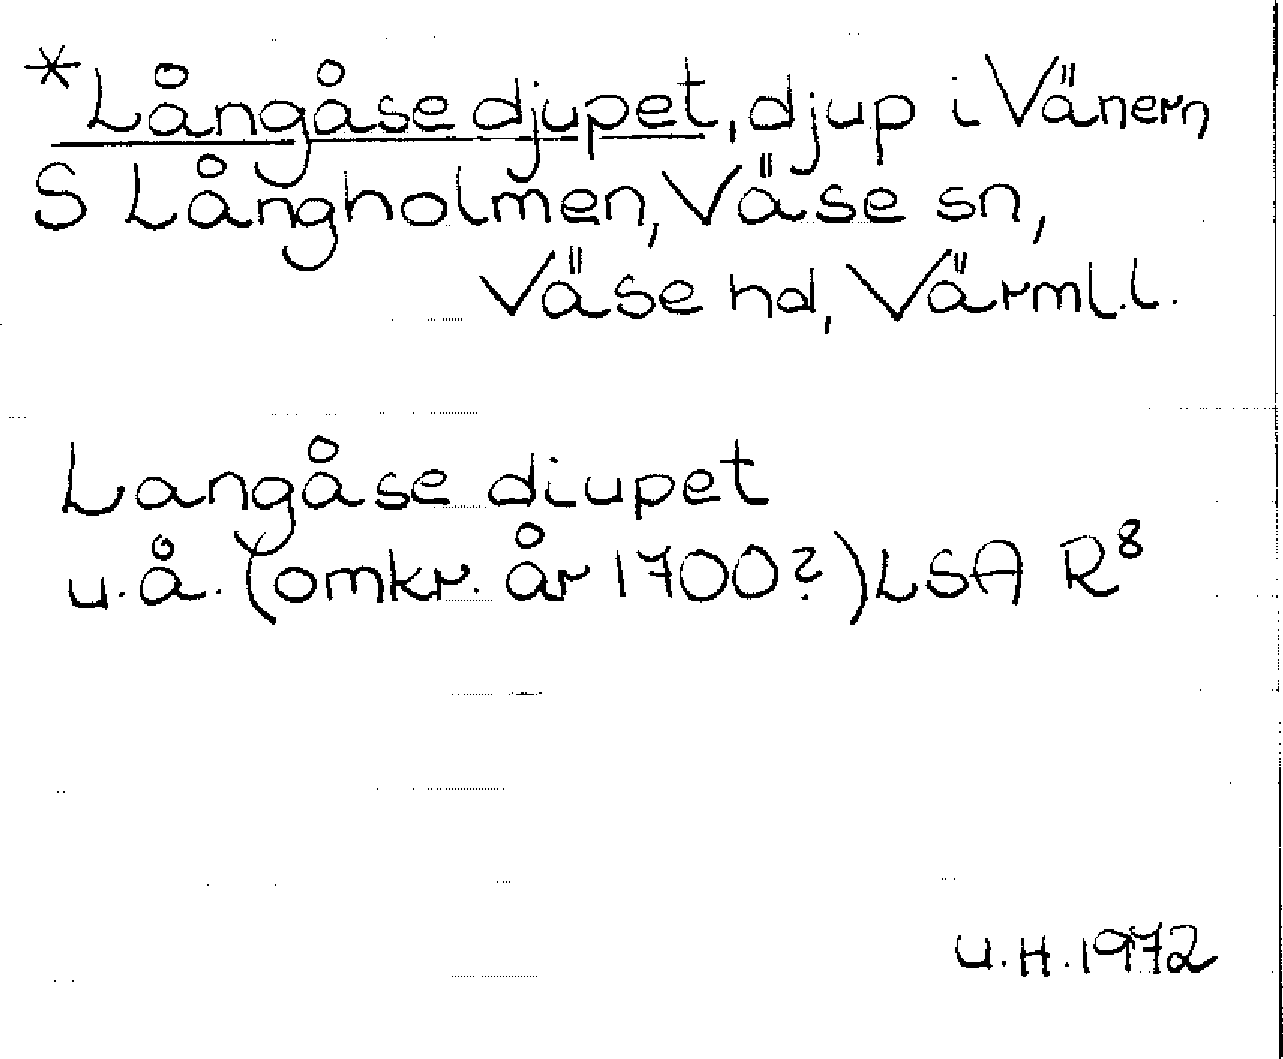 *Långåse djupet, djup i Vänern
S Långholmen, Väse sn,
Väse hd, Värml.l.
Langåse diupet
u.å. (omkr. år 1700?) LSA R⁸
U.H. 1972